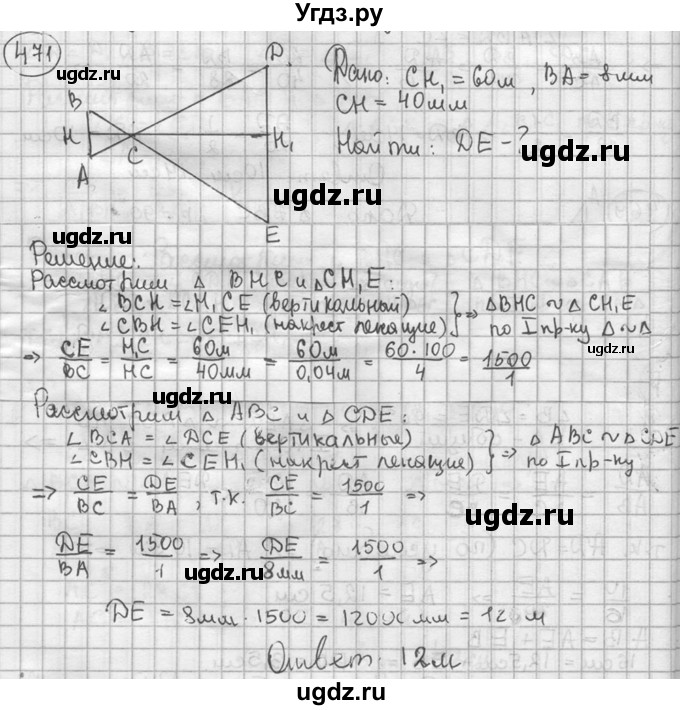 Угдз.ру
471
D.
Дано: CH₁ = 60м, BA = 8мм
CH = 40мм
Найти: DE - ?
B
H
A
C
H₁
E
ugdz.ru
ugdz.ru
ugdz.ru
ugdz.ru
Решение:
Рассмотрим △ BHC и △CH₁E:
∠BCH = ∠H₁CE (вертикальный)
∠CBH = ∠CEH₁ (накрест лежащие) } ⇒ △BHC ~ △CH₁E по I пр-ку △~△
ugdz.ru
⇒ CE/BC = H₁C/HC = 60м/40мм = 60м/0,04м = 60·100/4 = 1500/1
ugdz.ru
Рассмотрим △ ABC и △ CDE:
∠BCA = ∠DCE (вертикальные)
∠CBH = ∠CEH₁ (накрест лежащие) } ⇒ △ ABC ~ △CDE по I пр-ку
⇒ CE/BC = DE/BA, т.к. CE/BC = 1500/1 ⇒
ugdz.ru
DE/BA = 1500/1 ⇒ DE/8мм = 1500/1 ⇒
ugdz.ru
DE = 8мм · 1500 = 12000 мм = 12 м
Ответ: 12м
ugdz.ru
ugdz.ru